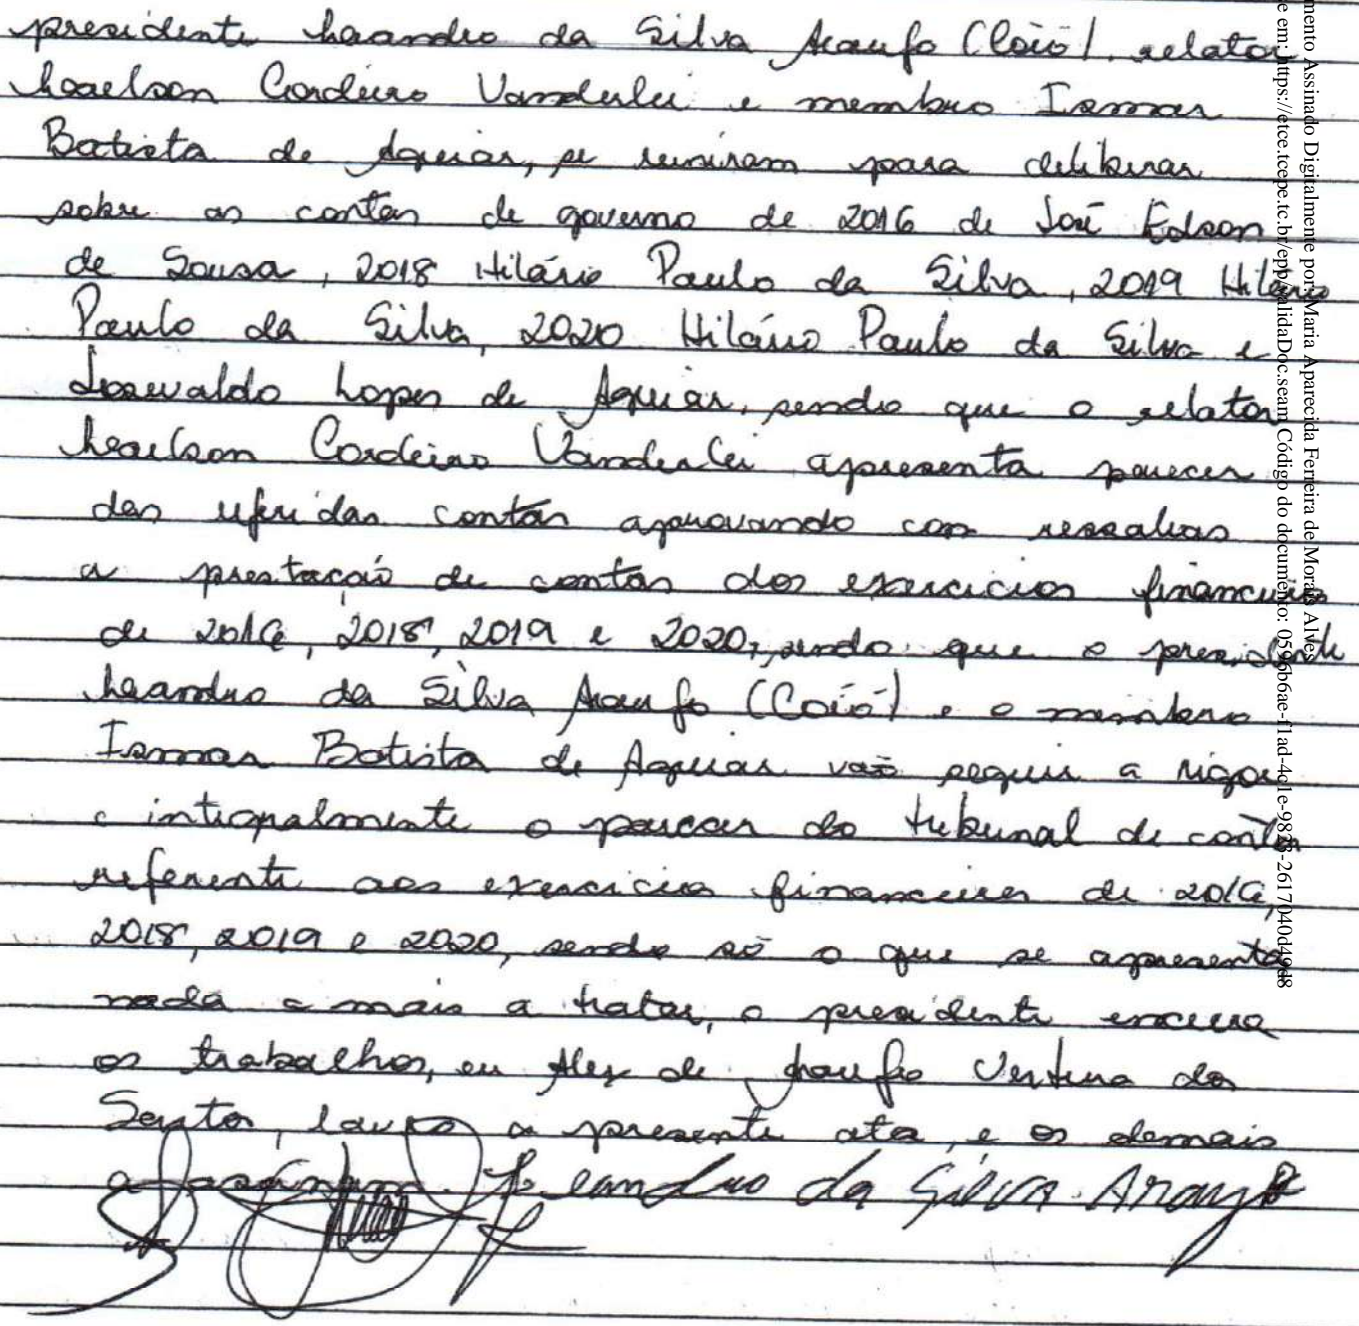 presidente Leandro da Silva Araujo (Coió), relator
Leaelson Cordeiro Vanderlei e membro Ismar
Batista de Aguiar, se reuniram para deliberar
sobre as contas de governo de 2016 de José Edson
de Sousa, 2018 Hilário Paulo da Silva, 2019 Hilário
Paulo da Silva, 2020 Hilário Paulo da Silva e
Lopes de Aguiar, sendo que o relator
Cordeiro Vanderlei apresenta parecer
das referidas contas aprovando com ressalvas
a prestação de contas dos exercicios financeiros
de 2016, 2018, 2019 e 2020, sendo que o presidente
Leandro da Silva Araujo (Coió) e o membro
Ismar Batista de Aguiar vão seguir a rigor
e integralmente o parecer do tribunal de contas
referente aos exercicios financeiros de 2016,
2018, 2019 e 2020, sendo só o que se apresenta
nada a mais a tratar, o presidente encerra
os trabalhos, eu Alex de Araujo Ventura dos
Santos, lavro a presente ata, e os demais
assinam. Leandro da Silva Araujo
mento Assinado Digitalmente por: Maria Aparecida Ferreira de Morais Alves
e em: https://etce.tcepe.tc.br/epp/validaDoc.seam Código do documento: 0596b6ae-f1ad-4c1e-9828-2617040d49d8